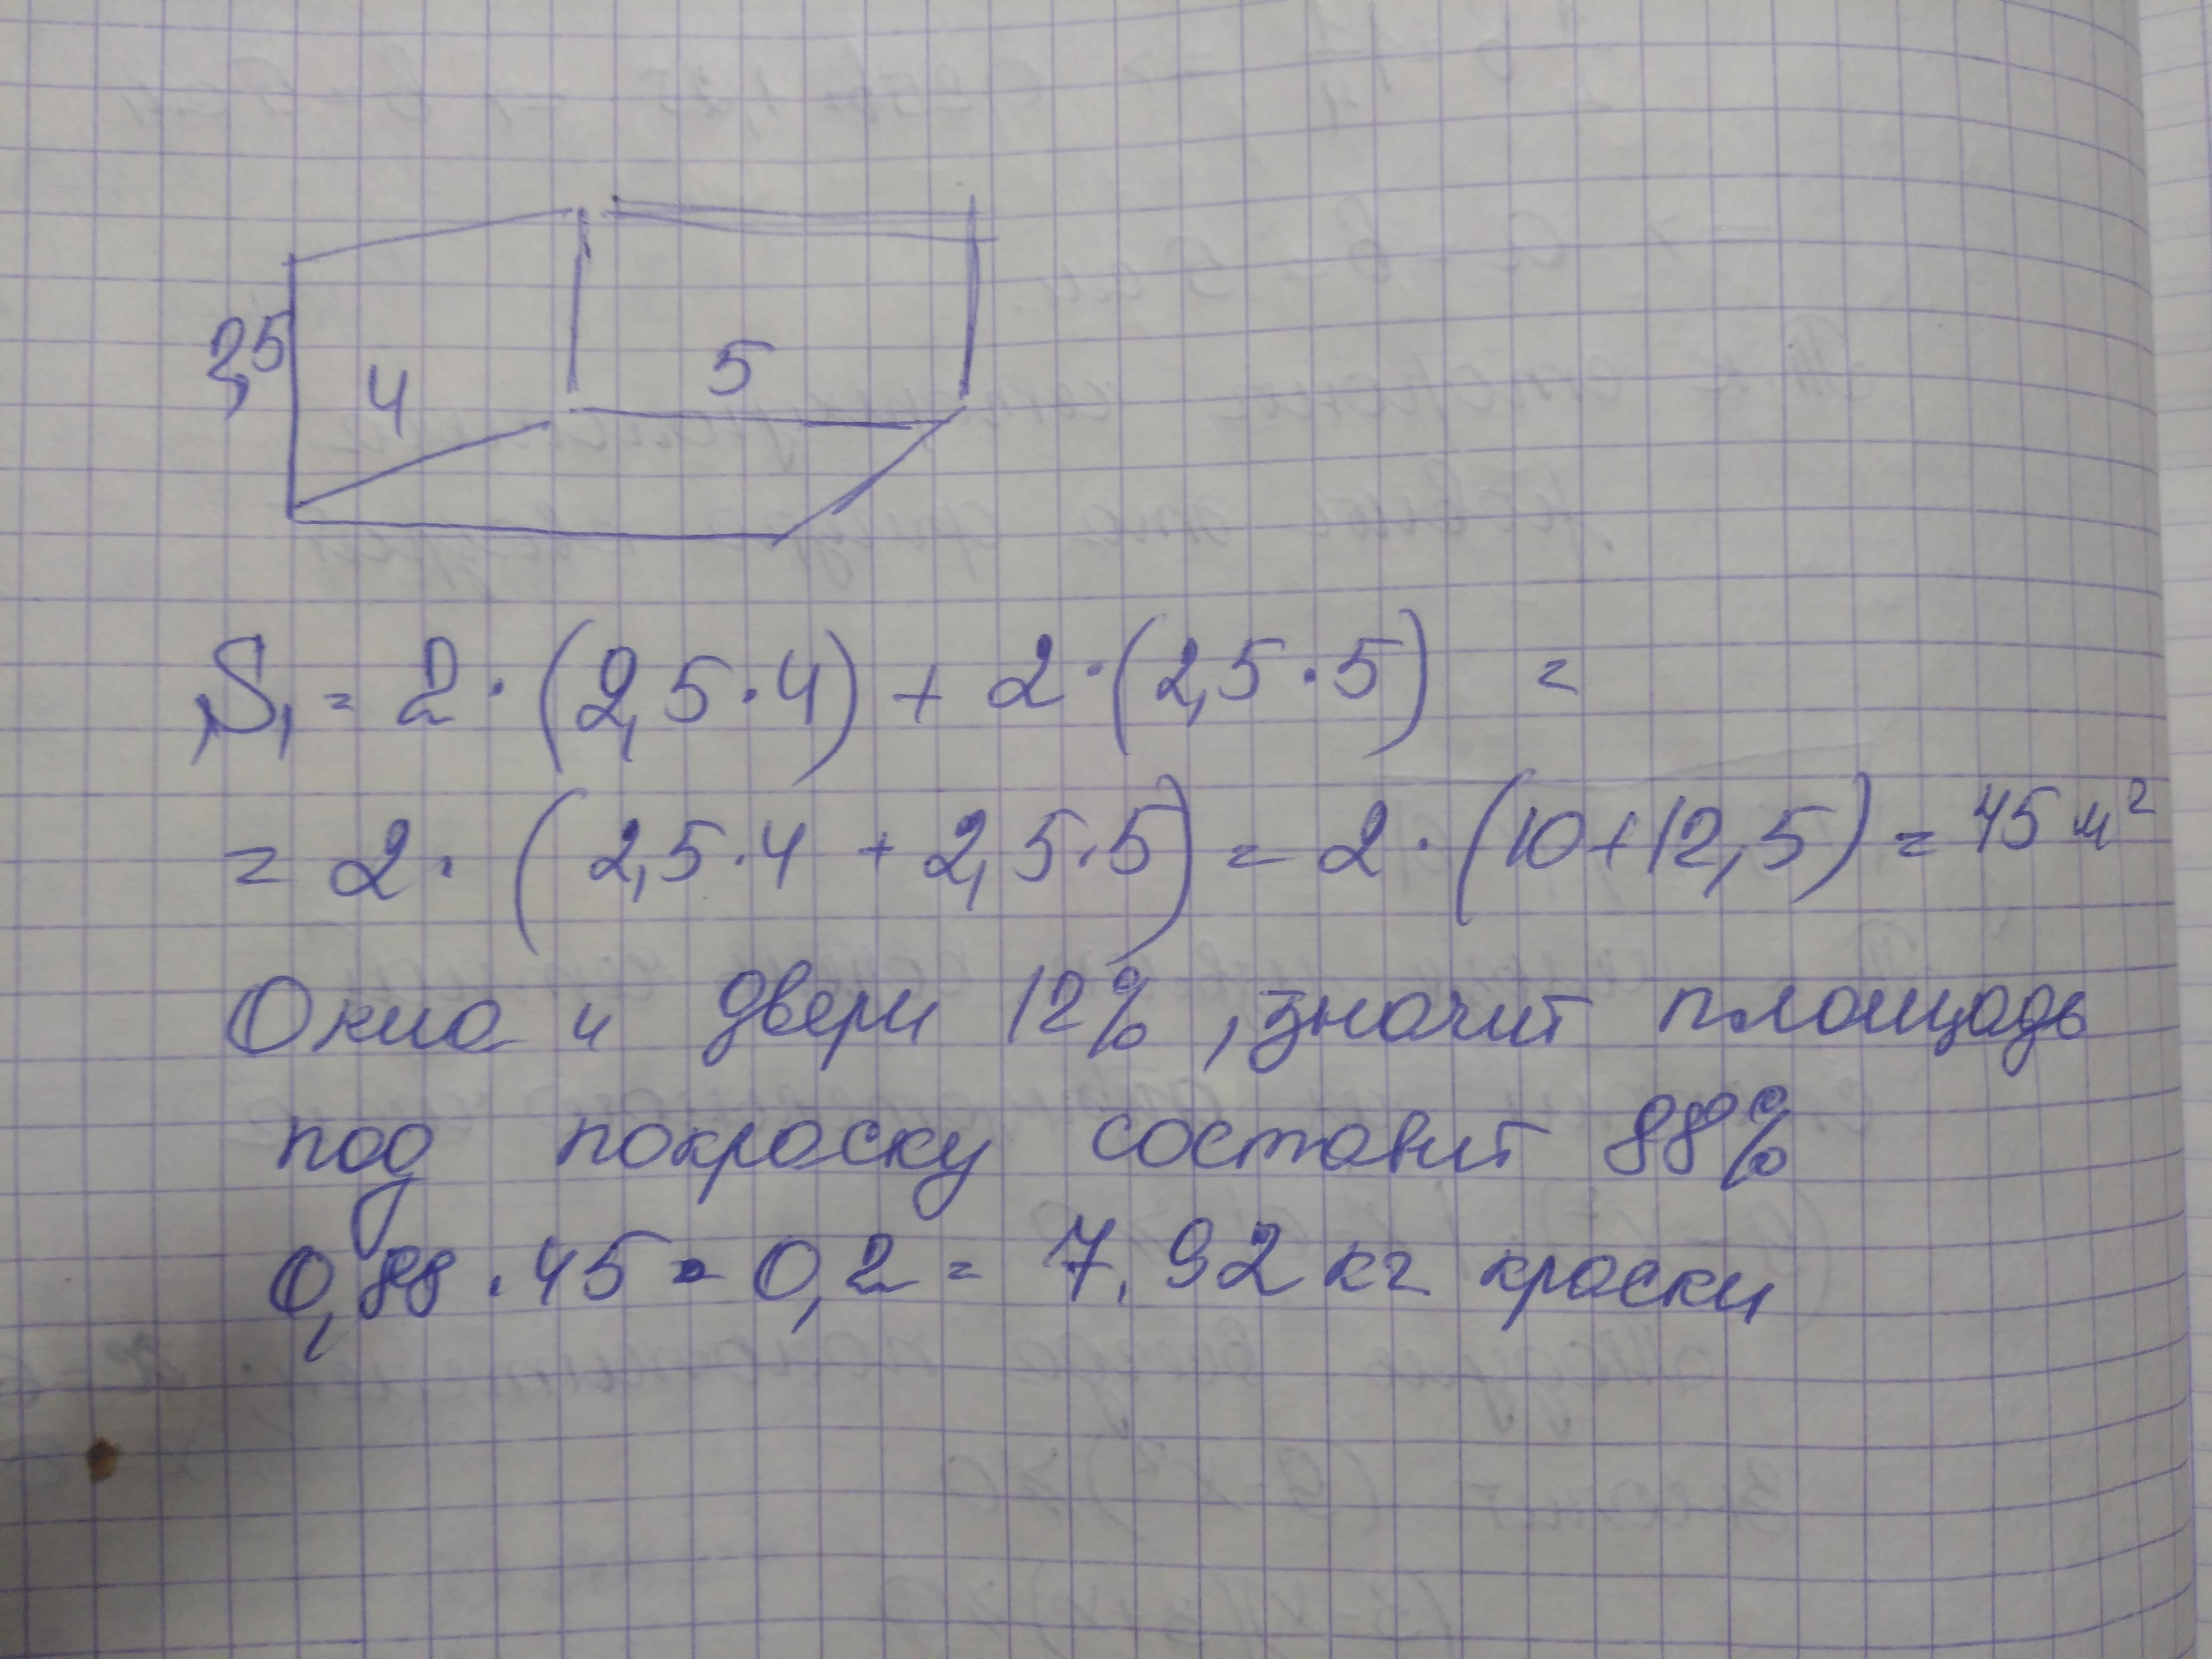 2,5
4
5
S₁ = 2 · (2,5 · 4) + 2 · (2,5 · 5) =
= 2 · (2,5 · 4 + 2,5 · 5) = 2 · (10 + 12,5) = 45 м²
Окна и двери 12%, значит площадь
под покраску составит 88%
0,88 · 45 · 0,2 = 7.92 кг краски